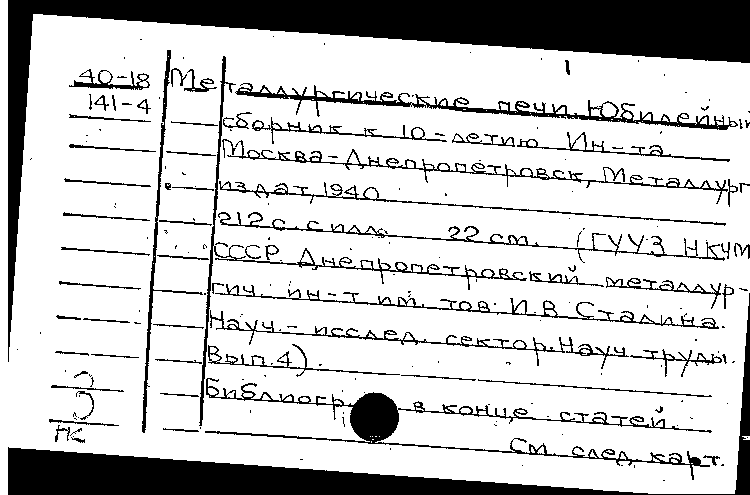 1
40-18 Металлургические печи. Юбилейный
141-4 сборник к 10=летию Ин-та.
Москва-Днепропетровск, Металлург
издат, 1940
212 с. с илл. 22 см. (ГУУЗ НКЧМ
СССР. Днепропетровский металлур-
гич. ин-т им. тов. И.В. Сталина.
Науч.-исслед. сектор. Науч. труды.
Вып. 4).
Библиогр. в конце статей.
См. след. карт.
НК